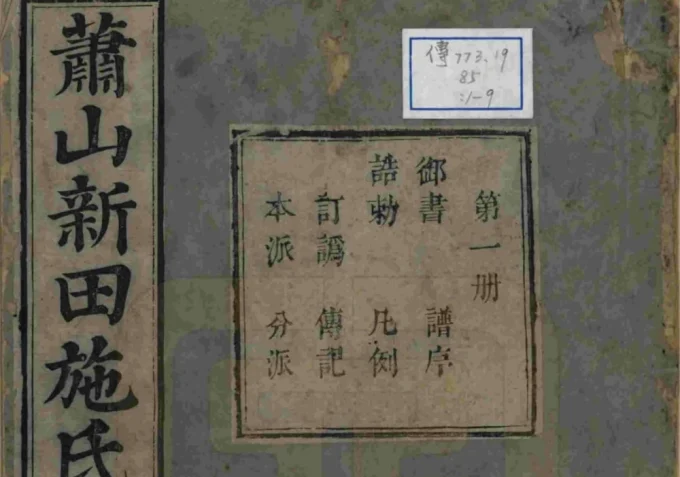 蕭山新田施氏
傳 773.19
85
:1-9
第一册
御書 譜序
誥勅 凡例
訂譌 傳記
本派 分派